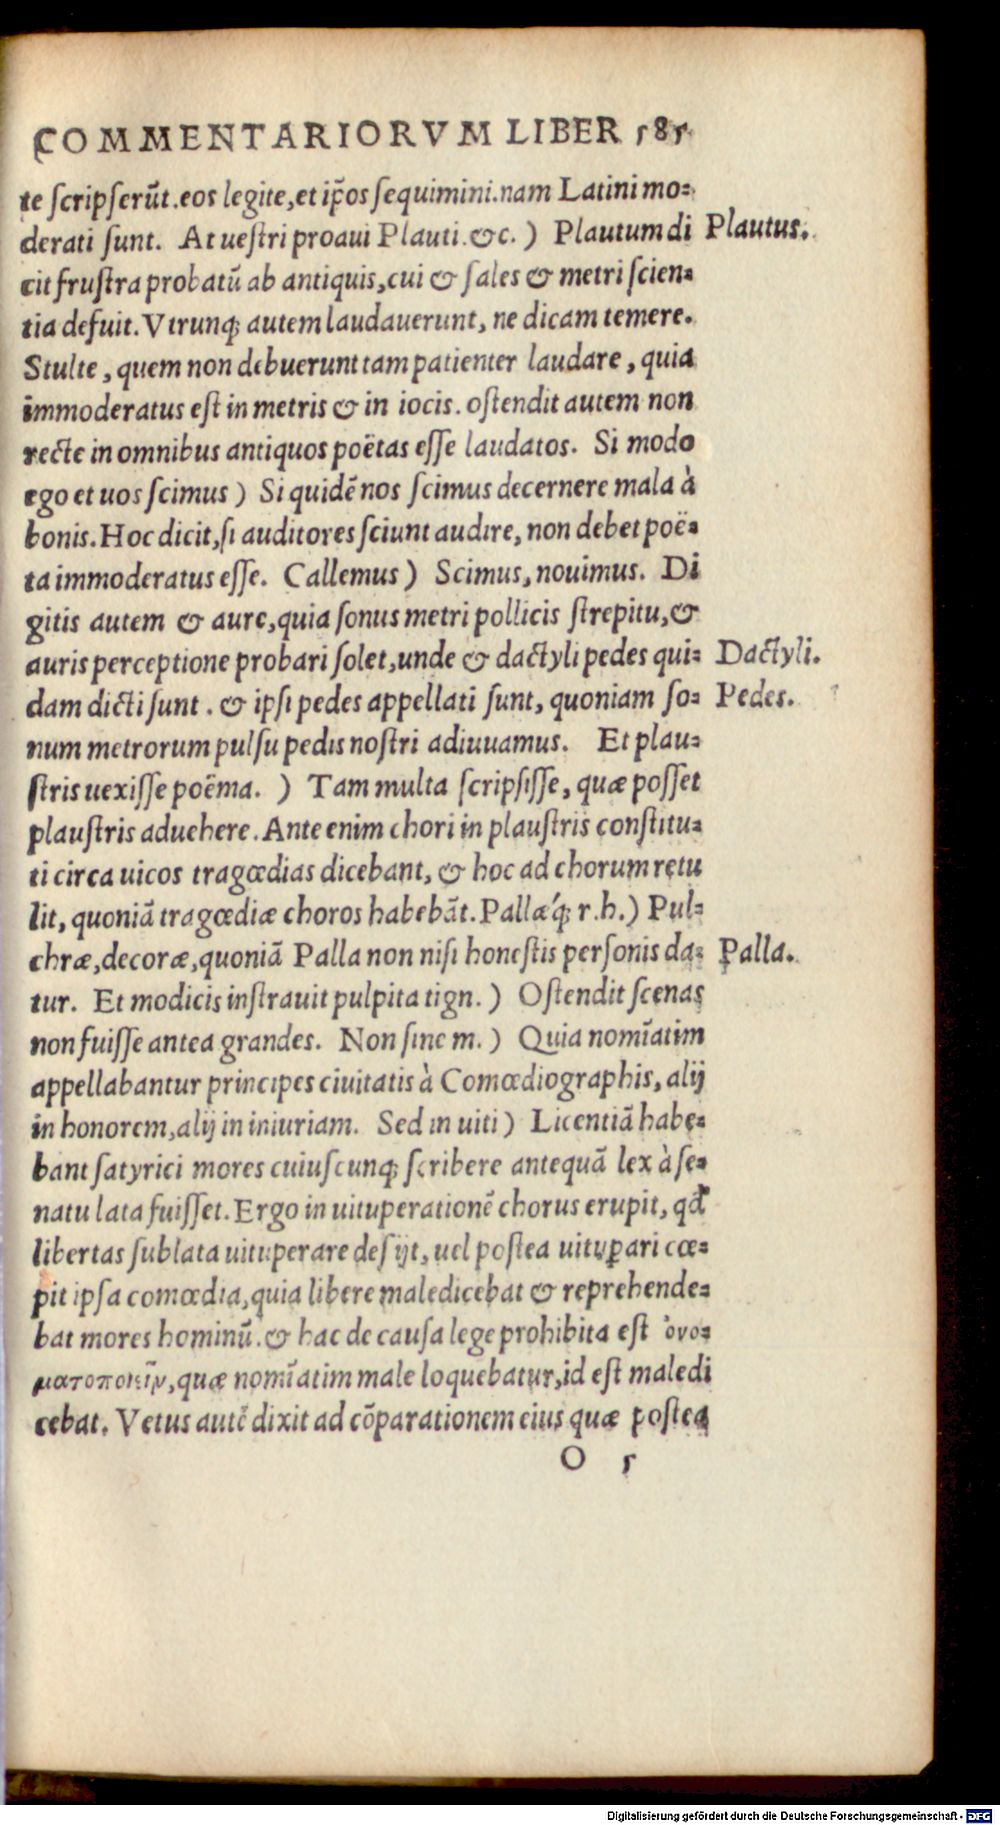 COMMENTARIORVM LIBER 585
te ſcripſerūt.eos legite,et ip̄os ſequimini.nam Latini mo=
derati ſunt. At ueſtri proaui Plauti.&c.) Plautum di Plautus.
cit fruſtra probatū ab antiquis,cui & ſales & metri ſcien=
tia defuit.Vtrunq; autem laudauerunt, ne dicam temere.
Stulte, quem non debuerunt tam patienter laudare, quia
immoderatus eſt in metris & in iocis. oſtendit autem non
recte in omnibus antiquos poëtas eſſe laudatos. Si modo
ego et uos ſcimus) Si quidē nos ſcimus decernere mala à
bonis.Hoc dicit,ſi auditores ſciunt audire, non debet poë=
ta immoderatus eſſe. Callemus) Scimus, nouimus. Di
gitis autem & aure,quia ſonus metri pollicis ſtrepitu,&
auris perceptione probari ſolet,unde & dactyli pedes qui= Dactyli.
dam dicti ſunt. & ipſi pedes appellati ſunt, quoniam ſo= Pedes.
num metrorum pulſu pedis noſtri adiuuamus. Et plau=
ſtris uexiſſe poëma.) Tam multa ſcripſiſſe, quæ poſſet
plauſtris aduehere.Ante enim chori in plauſtris conſtitu=
ti circa uicos tragœdias dicebant, & hoc ad chorum retu
lit, quoniā tragœdiæ choros habebāt.Pallǽq; r.h.) Pul=
chræ,decoræ,quoniā Palla non niſi honeſtis perſonis da= Palla.
tur. Et modicis inſtrauit pulpita tign.) Oſtendit ſcenas
non fuiſſe antea grandes. Non ſine m.) Quia nomīatim
appellabantur principes ciuitatis à Comœdiographis, alij
in honorem,alij in iniuriam. Sed in uiti) Licentiā habe=
bant ſatyrici mores cuiuſcunq; ſcribere antequā lex à ſe=
natu lata fuiſſet.Ergo in uituperationē chorus erupit, qd̓
libertas ſublata uituperare deſijt, uel poſtea uitup̱ari cœ=
pit ipſa comœdia,quia libere maledicebat & reprehende=
bat mores hominū.& hac de cauſa lege prohibita eſt ὀνο=
ματοποιεῖν, quæ nomīatim male loquebatur,id eſt maledi
cebat. Vetus autē dixit ad cōparationem eius quæ poſtea
O 5
Digitalisierung gefördert durch die Deutsche Forschungsgemeinschaft - DFG